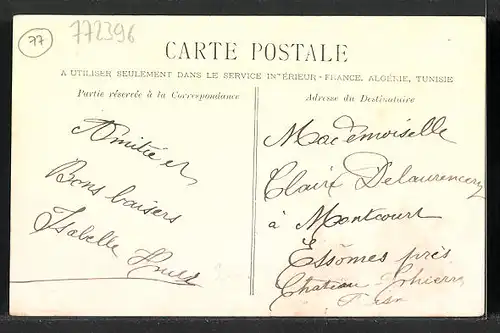 77
772396
CARTE POSTALE
A UTILISER SEULEMENT DANS LE SERVICE INTÉRIEUR - FRANCE, ALGÉRIE, TUNISIE
Partie réservée à la Correspondance
Adresse du Destinataire
Amitié et
Bons baisers
Isabelle
Mademoiselle
Claire Delaurencery
à Montcourt
Essômes près
Chateau Thierry